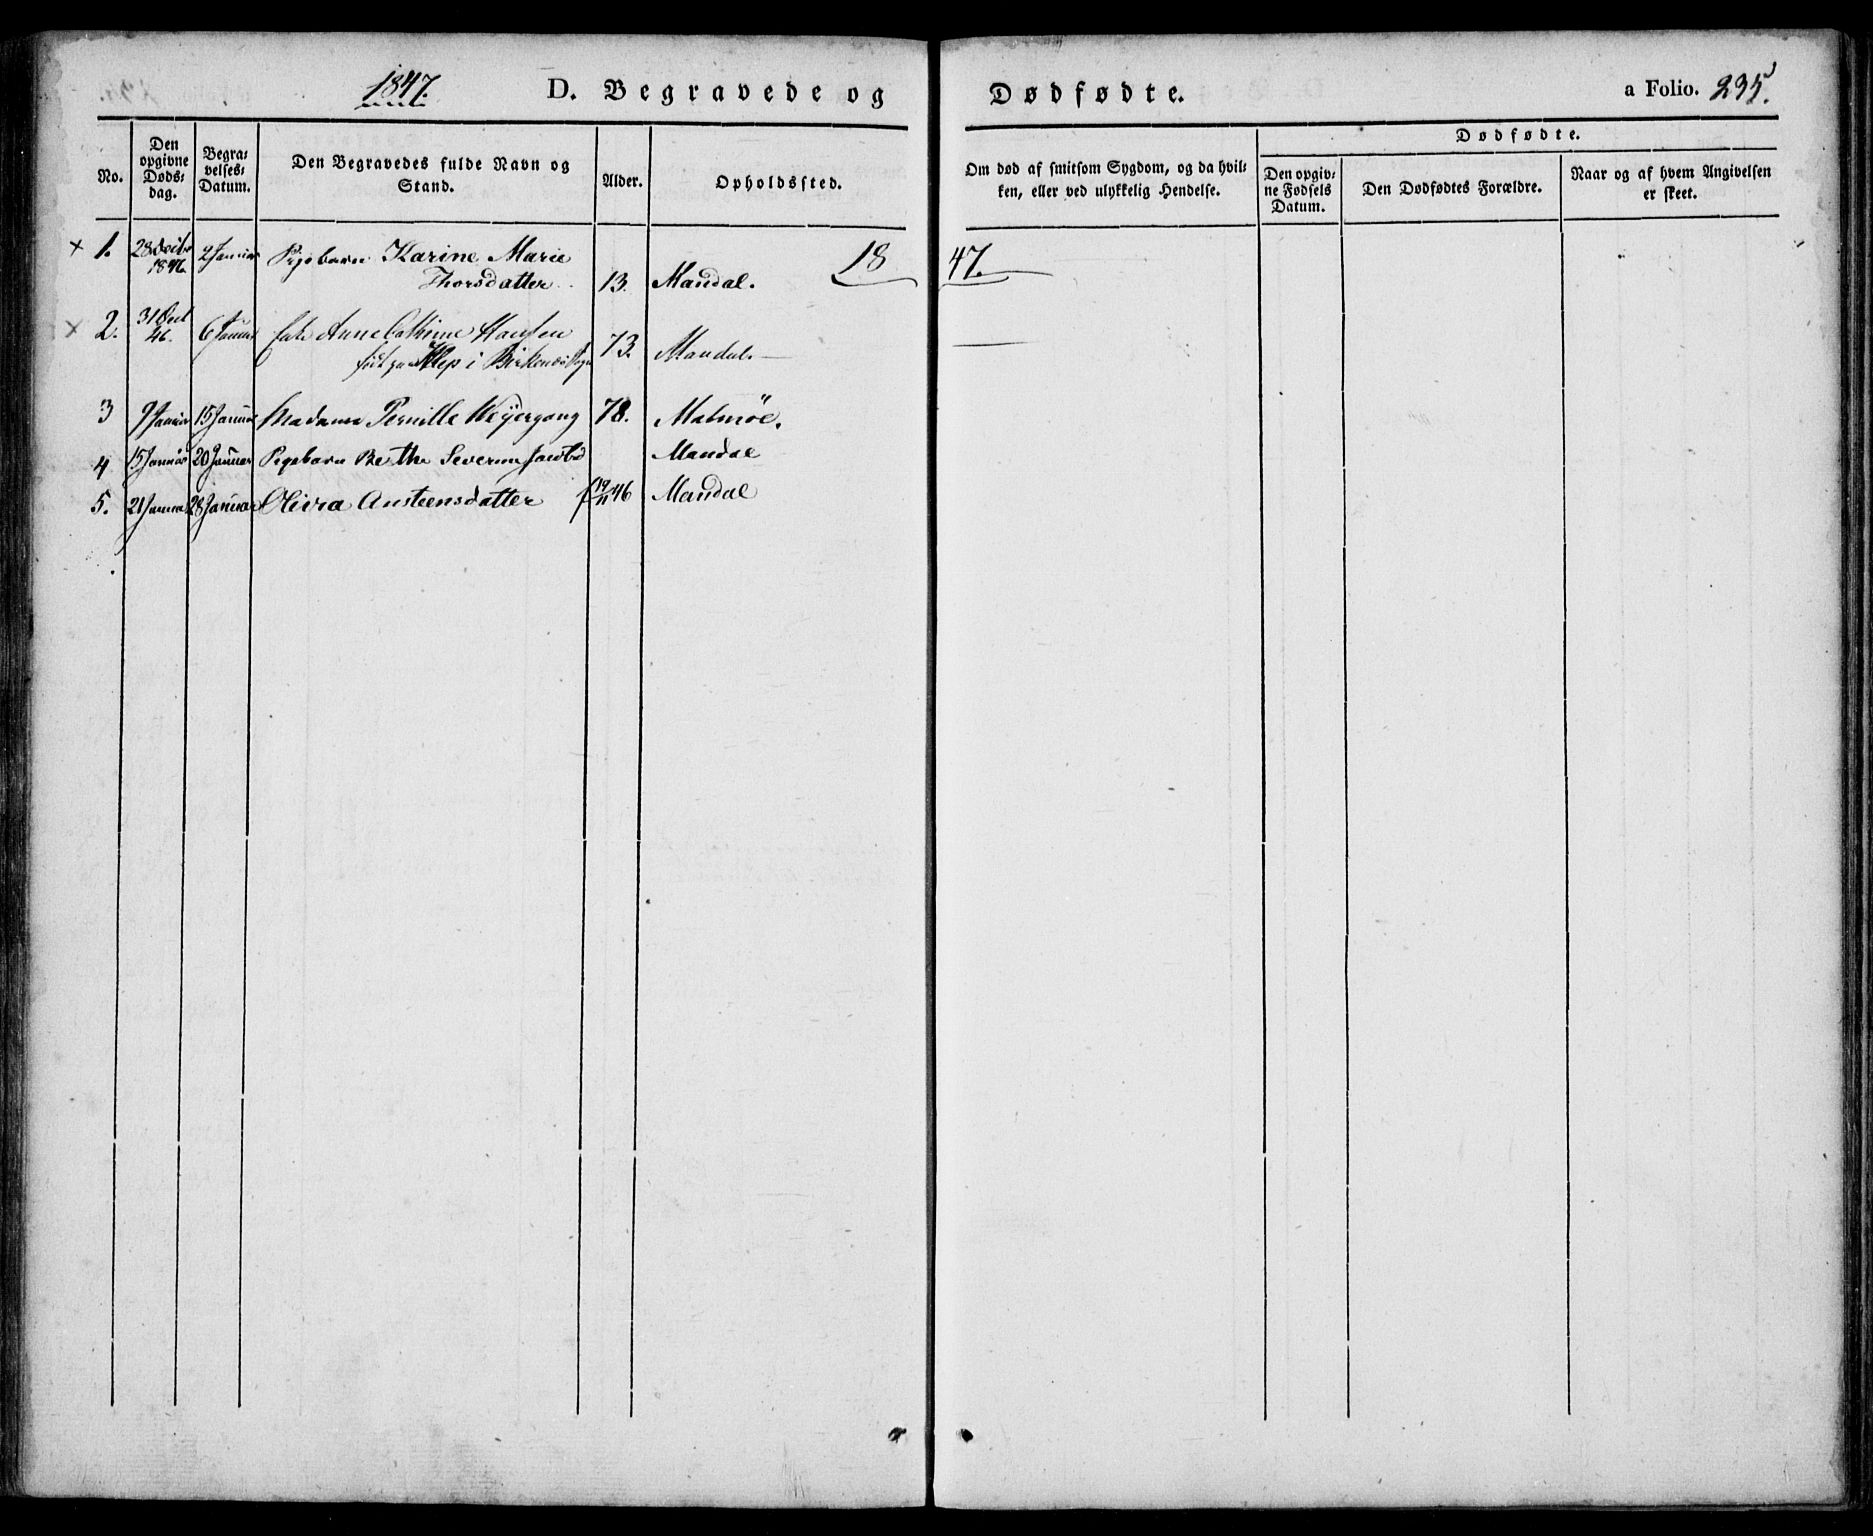 1847. D. Begravede og Dødfødte. a Folio. 235.
No.
Den opgivne Døds-dag.
Begra-velses-Datum.
Den Begravedes fulde Navn og Stand.
Alder.
Opholdssted.
Om død af smitsom Sygdom, og da hvil-
ken, eller ved ulykkelig Hendelse.
Dødfødte.
Den opgiv-
ne Fødsels
Datum.
Den Dødfødtes Forældre.
Naar og af hvem Angivelsen
er skeet.
18 47.
× 1. 28 1846. 2 Januar Pigebarn Karine Marie
Thorsdatter 13. Mandal.
× 2. 31 46. 6 Januar Enke Anne Cathrine Hansen
født paa Klep i Birkenæs Sogn 73. Mandal.
3 9 Januar 15 Januar Madame Pernille Weyergang 78. Malmøe.
4 15 Januar 20 Januar Pigebarn Berthe Severine Mandal
5. 21 Januar 28 Januar Olivia Austeensdatter f 19/11 46 Mandal